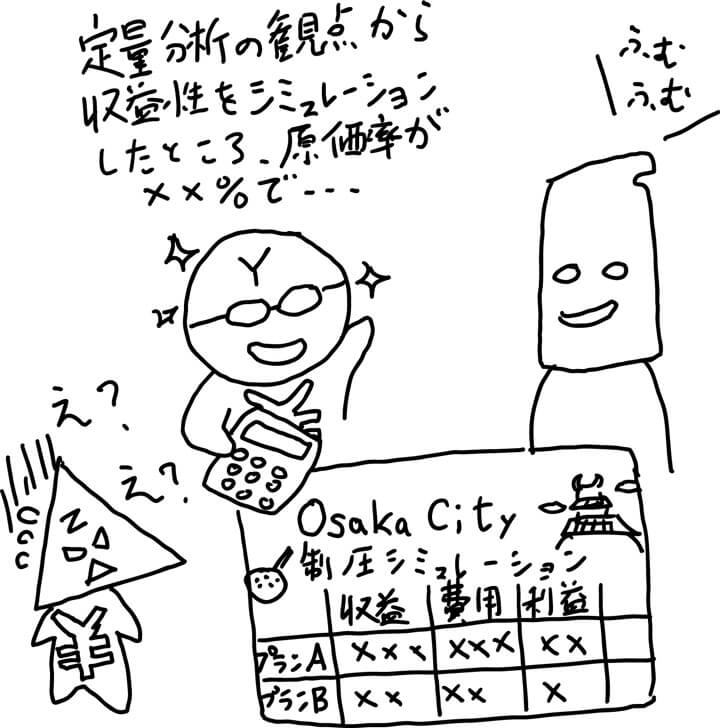 定量分析の観点から
収益性をシミュレーション
したところ、原価率が
××%で---
ふむ
ふむ
Y
¥
え?
え?
Z
¥
Osaka City
制圧シミュレーション
収益 費用 利益
プランA ××× ××× ××
プランB ×× ×× ×